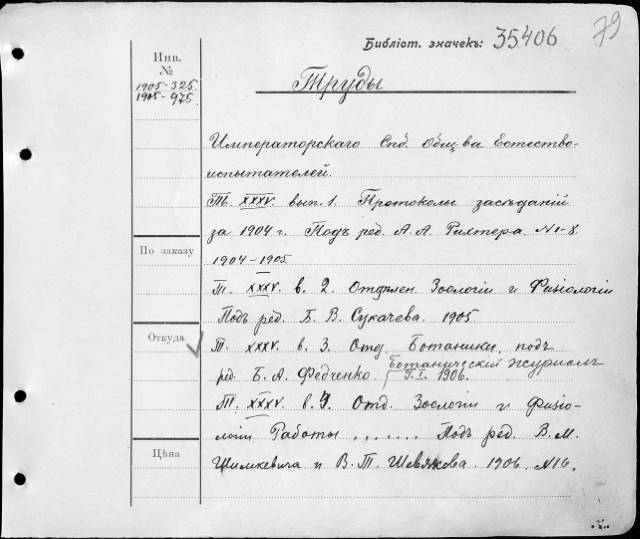 79
Библіот. значекъ: 35.406
Инв.
№
1905-325.
1905-975.
Труды
Императорскаго Спб. Общ-ва Естество-
испытателей.
Т. XXXV. вып. 1. Протоколы засѣданій
за 1904 г. Подъ ред. А. А. Рихтера. № 1-8.
1904-1905.
По заказу
Т. XXXV. в. 2. Отдѣлен. Зоологіи и Физіологіи
Подъ ред. Б. В. Сукачева. 1905
Откуда
Т. XXXV. в. 3. Отд. Ботаники. подъ
ред. Б. А. Федченко. Ботаническій журналъ
Т. I. 1906.
Т. XXXV. в. 4. Отд. Зоологіи и Физіо-
логіи Работы ...... Подъ ред. В. М.
Цѣна
Шимкевича и В. Т. Шевякова. 1906. № 16.